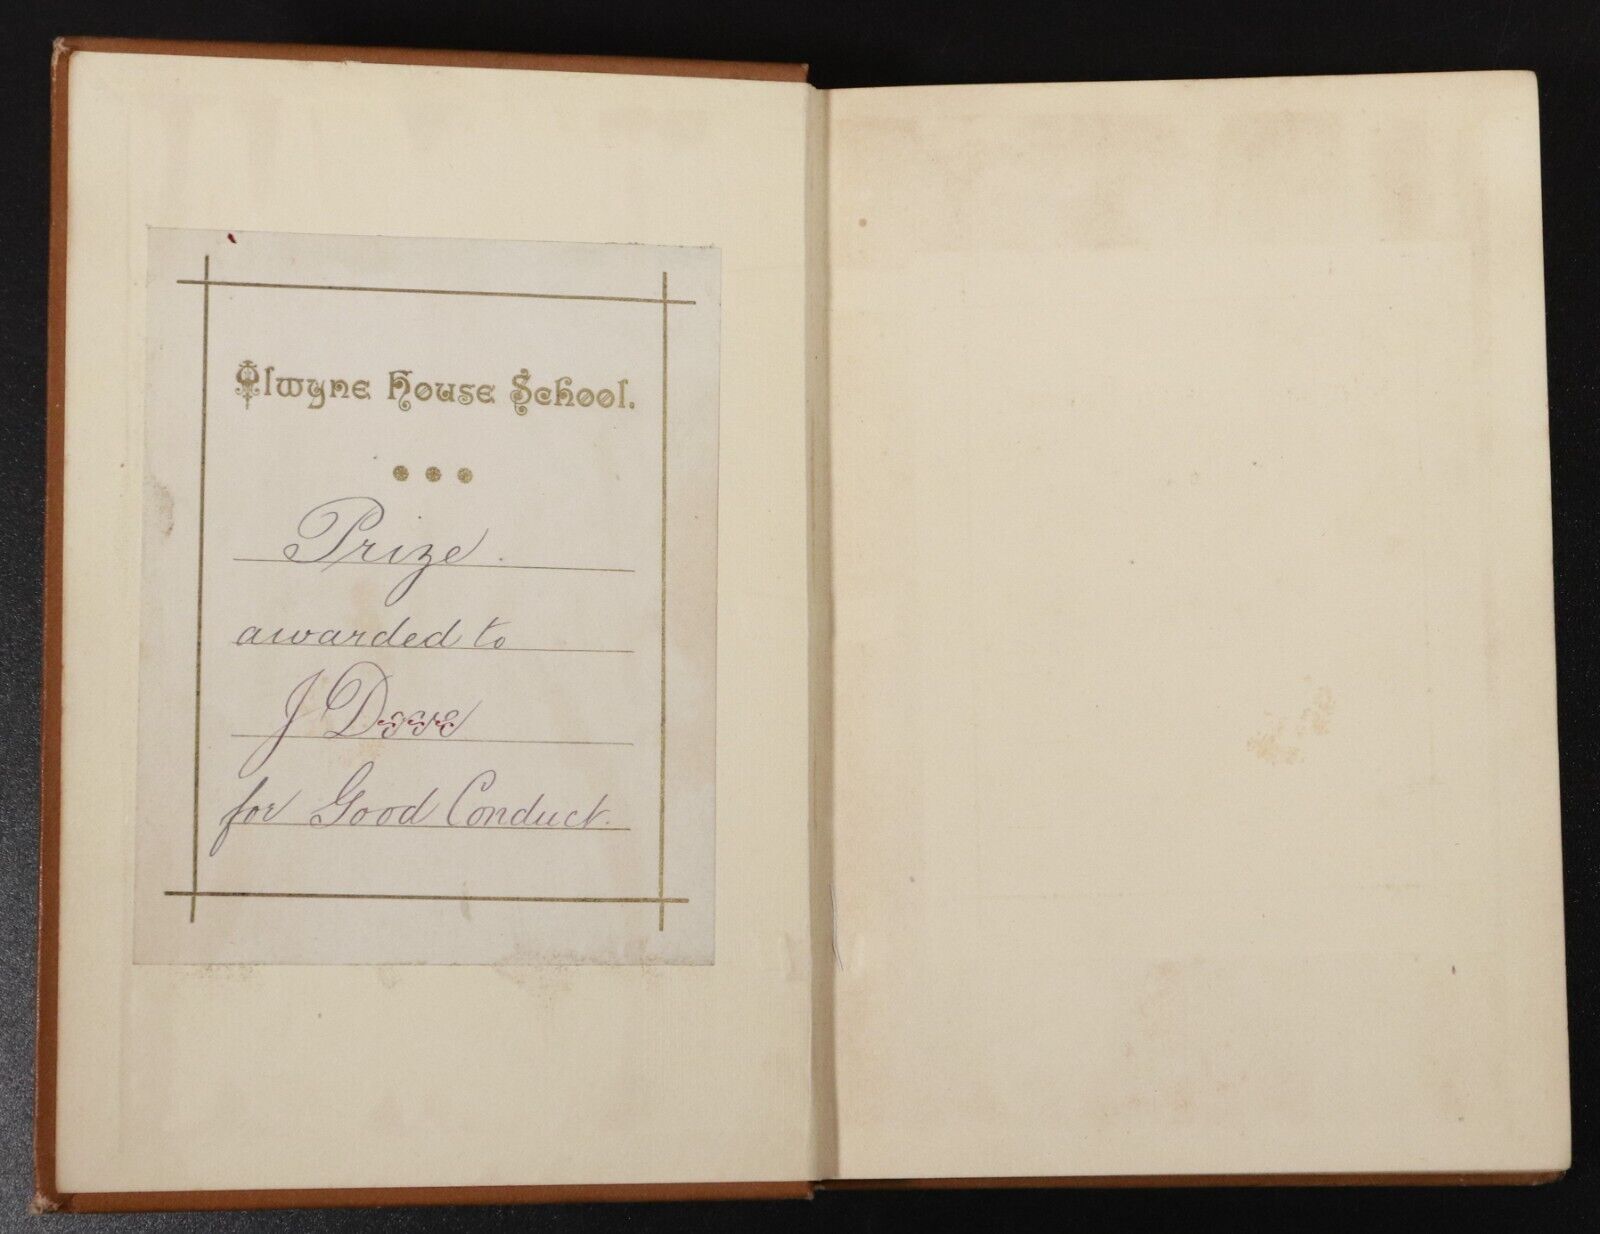 Alwyne House School.
Prize.
awarded to
J
for Good Conduct.